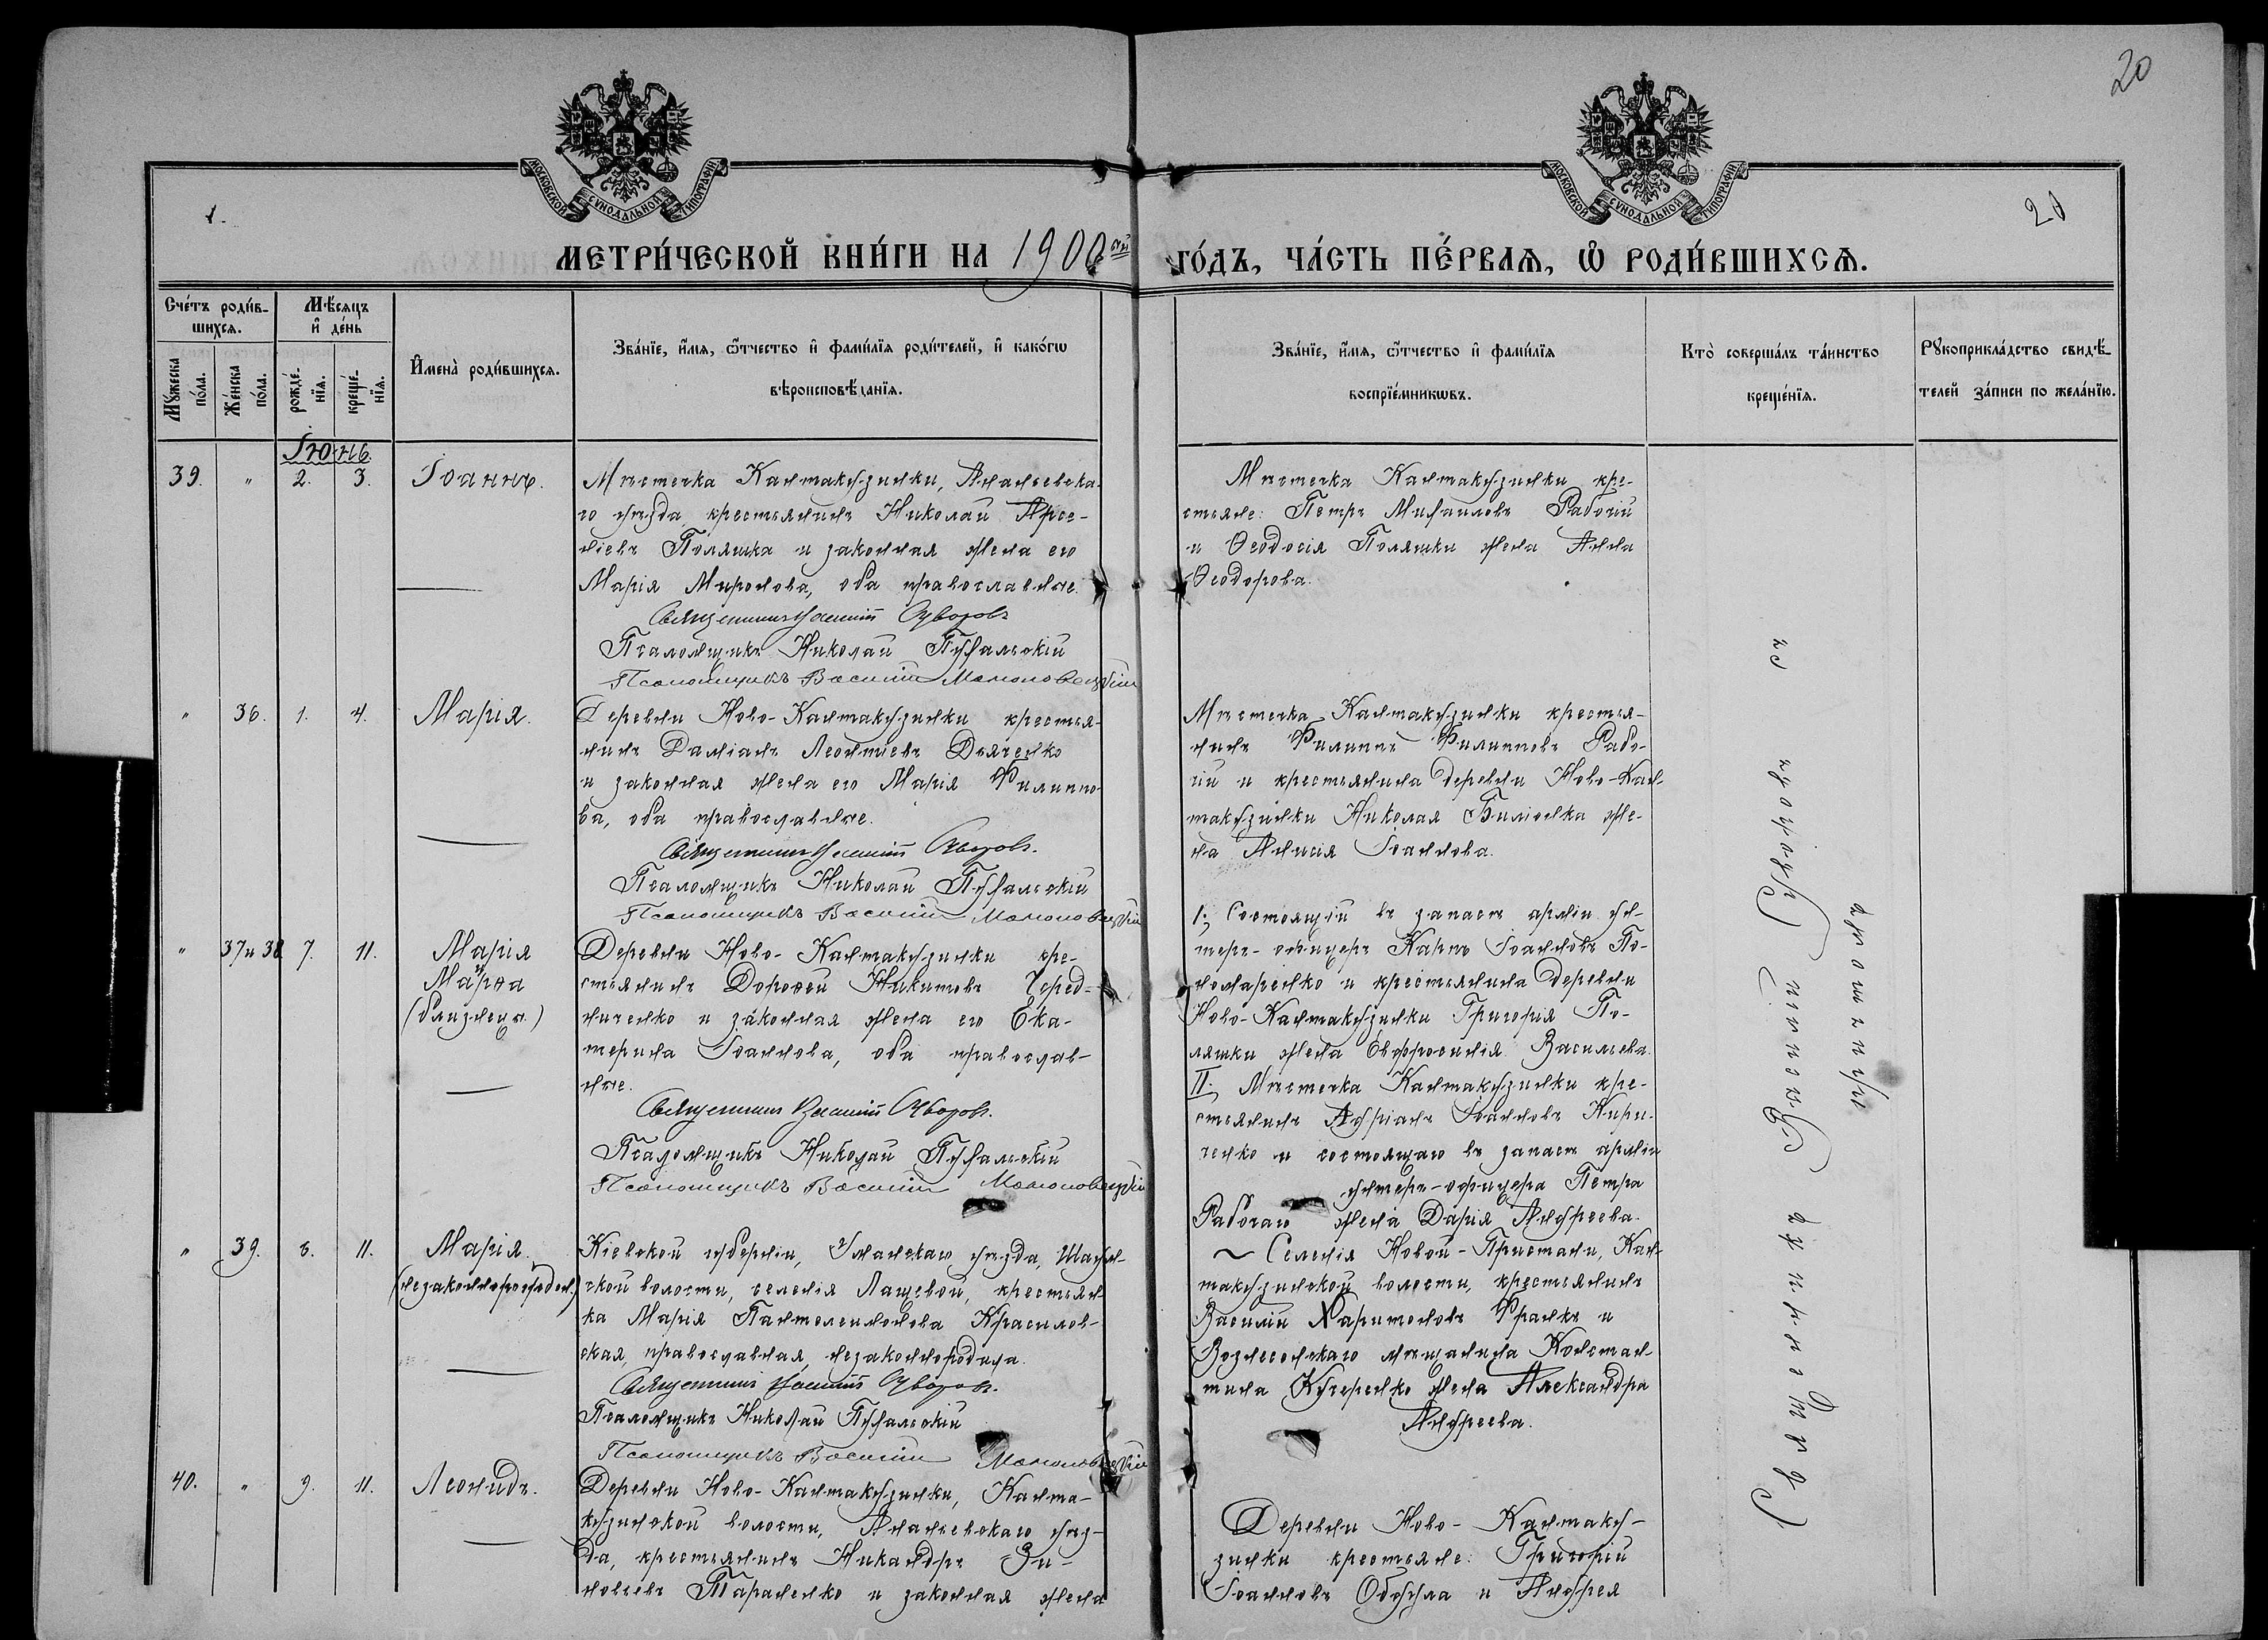 20
МОСКОВСКОЙ СУНОДАЛЬНОЙ ТИПОГРАФІИ
МОСКОВСКОЙ СУНОДАЛЬНОЙ ТИПОГРАФІИ
1.
20
МЕТРИ́ЧЕСКОЙ КНИ́ГИ НА 1900ый
ГО́ДЪ, ЧА́СТЬ ПЕ́РВАѦ, Ѡ РОДИ́ВШИХСѦ.
Сче́тъ роди́в-
шихсѧ.
Мꙋ́жеска по́ла.
Же́нска по́ла.
Мѣ́сѧцъ
и҆ де́нь
рожде́-нїѧ.
креще́-нїѧ.
И҆мена̀ роди́вшихсѧ.
Зва́нїе, и҆́мѧ, ѻ҆́тчество и҆ фами́лїѧ роди́телей, и҆ како́гѡ
вѣроисповѣ́данїѧ.
Зва́нїе, и҆́мѧ, ѻ҆́тчество и҆ фами́лїѧ
воспрїе́мникѡвъ.
Кто̀ соверша́лъ та́инство
креще́нїѧ.
Рꙋкоприкла́дство свидѣ́-
телей за́писи по жела́нїю.
Іюнь.
39. " 2. 3. Іоаннъ.
Мѣстечка Кантакузинки, Ананьевска-
го уѣзда крестьянинъ Николай Арсе-
ніевъ Поляшка и законная жена его
Марія Миронова, оба православные.
Священникъ Іоаннъ
Псаломщикъ Николай
Псаломщикъ Василій
Мѣстечка Кантакузинки кре-
стьяне: Петръ Михаиловъ Рабочій
и Ѳеодосія Поляшки жена Анна
Ѳеодорова.
" 36. 1. 4. Марія.
Деревни Ново-Кантакузинки крестья-
нинъ Даміанъ Леонтіевъ Дьяченко
и законная жена его Марія Филиппо-
ва, оба православные.
Священникъ
Псаломщикъ Николай
Псаломщикъ Василій
Мѣстечка Кантакузинки крестья-
нинъ Филиппъ Филипповъ Рабо-
чій и крестьянина деревни Ново-Кан-
такузинки Николая Биліенка же-
на Анисія Іоаннова.
" 37 и 38 7. 11. Марія
и
Марѳа
(близнецы.)
Деревни Ново-Кантакузинки кре-
стьянинъ Дороѳей Никитовъ Черед-
ниченко и законная жена его Ека-
терина Іоаннова, оба православ-
ные.
Священникъ
Псаломщикъ Николай
Псаломщикъ Василій
I. Состоящій въ запасѣ арміи ун-
теръ-офицеръ Карпъ Іоанновъ По-
номаренко и крестьянина деревни
Ново-Кантакузинки Григорія По-
ляшки жена Евфросинія Васильева.
II. Мѣстечка Кантакузинки кре-
стьянинъ Адріанъ Іоанновъ Кири-
ченко и состоящаго въ запасѣ арміи
унтеръ-офицера Петра
Рабочаго жена Дарія Андреева.
" 39. 8. 11. Марія.
(незаконнорожден.)
Кіевской губерніи, Уманскаго уѣзда,
ской волости, селенія Лащевой, крестьян-
ка Марія Пантелеимонова Красилов-
ская, православная, незаконнородила.
Священникъ
Псаломщикъ Николай
Псаломщикъ Василій
Селенія Новой-Пристани, Кан-
такузинской волости, крестьянинъ
Василій Харитоновъ Франкъ и
Вознесенскаго мѣщанина Констан-
тина Кучеренко жена Александра
Андреева.
40. " 9. 11. Леонидъ.
Деревни Ново-Кантакузинки, Канта-
кузинской волости, Ананьевскаго уѣз-
да, крестьянинъ Никандръ Зи-
новіевъ Тараненко и законная жена
Деревни Ново-Кантаку-
зинки крестьяне: Григорій
Іоанновъ и Андрея